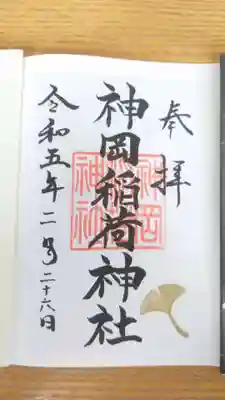 奉拝
神岡稲荷神社
令和五年二月二十六日